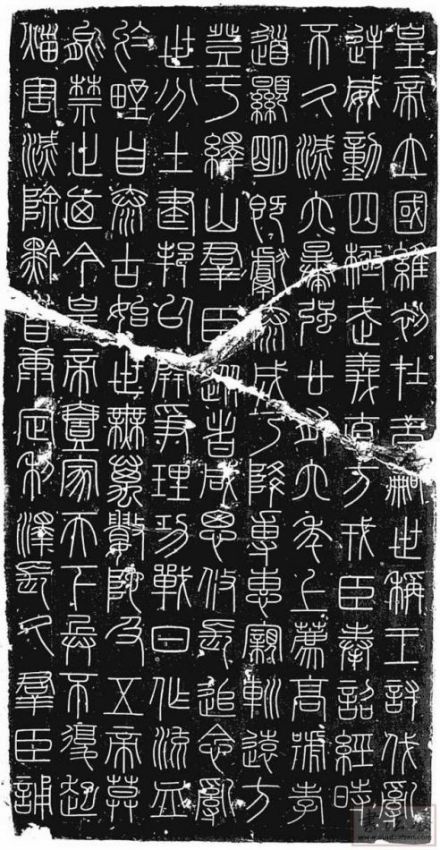 皇帝立國維初在昔嗣世稱王討伐亂
逆威動四極武義直方戎臣奉詔經時
不久滅六暴強廿有六年上薦高號孝
道顯明既獻泰成乃降尃惠親巡遠方
登于繹山羣臣從者咸思攸長追念亂
世分土建邦以開爭理功戰日作流血
於野自泰古始世無萬數陀及五帝莫
能禁止廼今皇帝壹家天下兵不復起
災害滅除黔首康定利澤長久羣臣誦